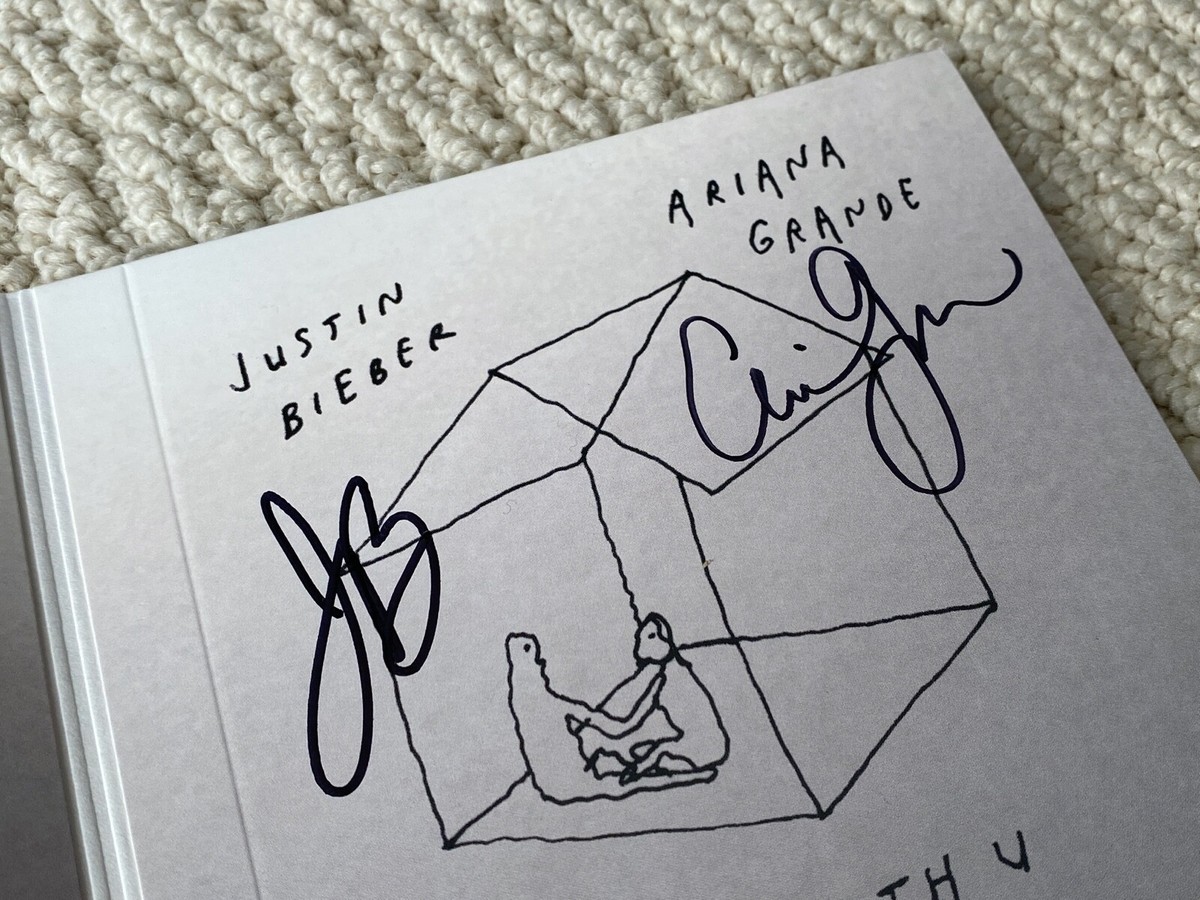 ARIANA
GRANDE
JUSTIN
BIEBER
TH U